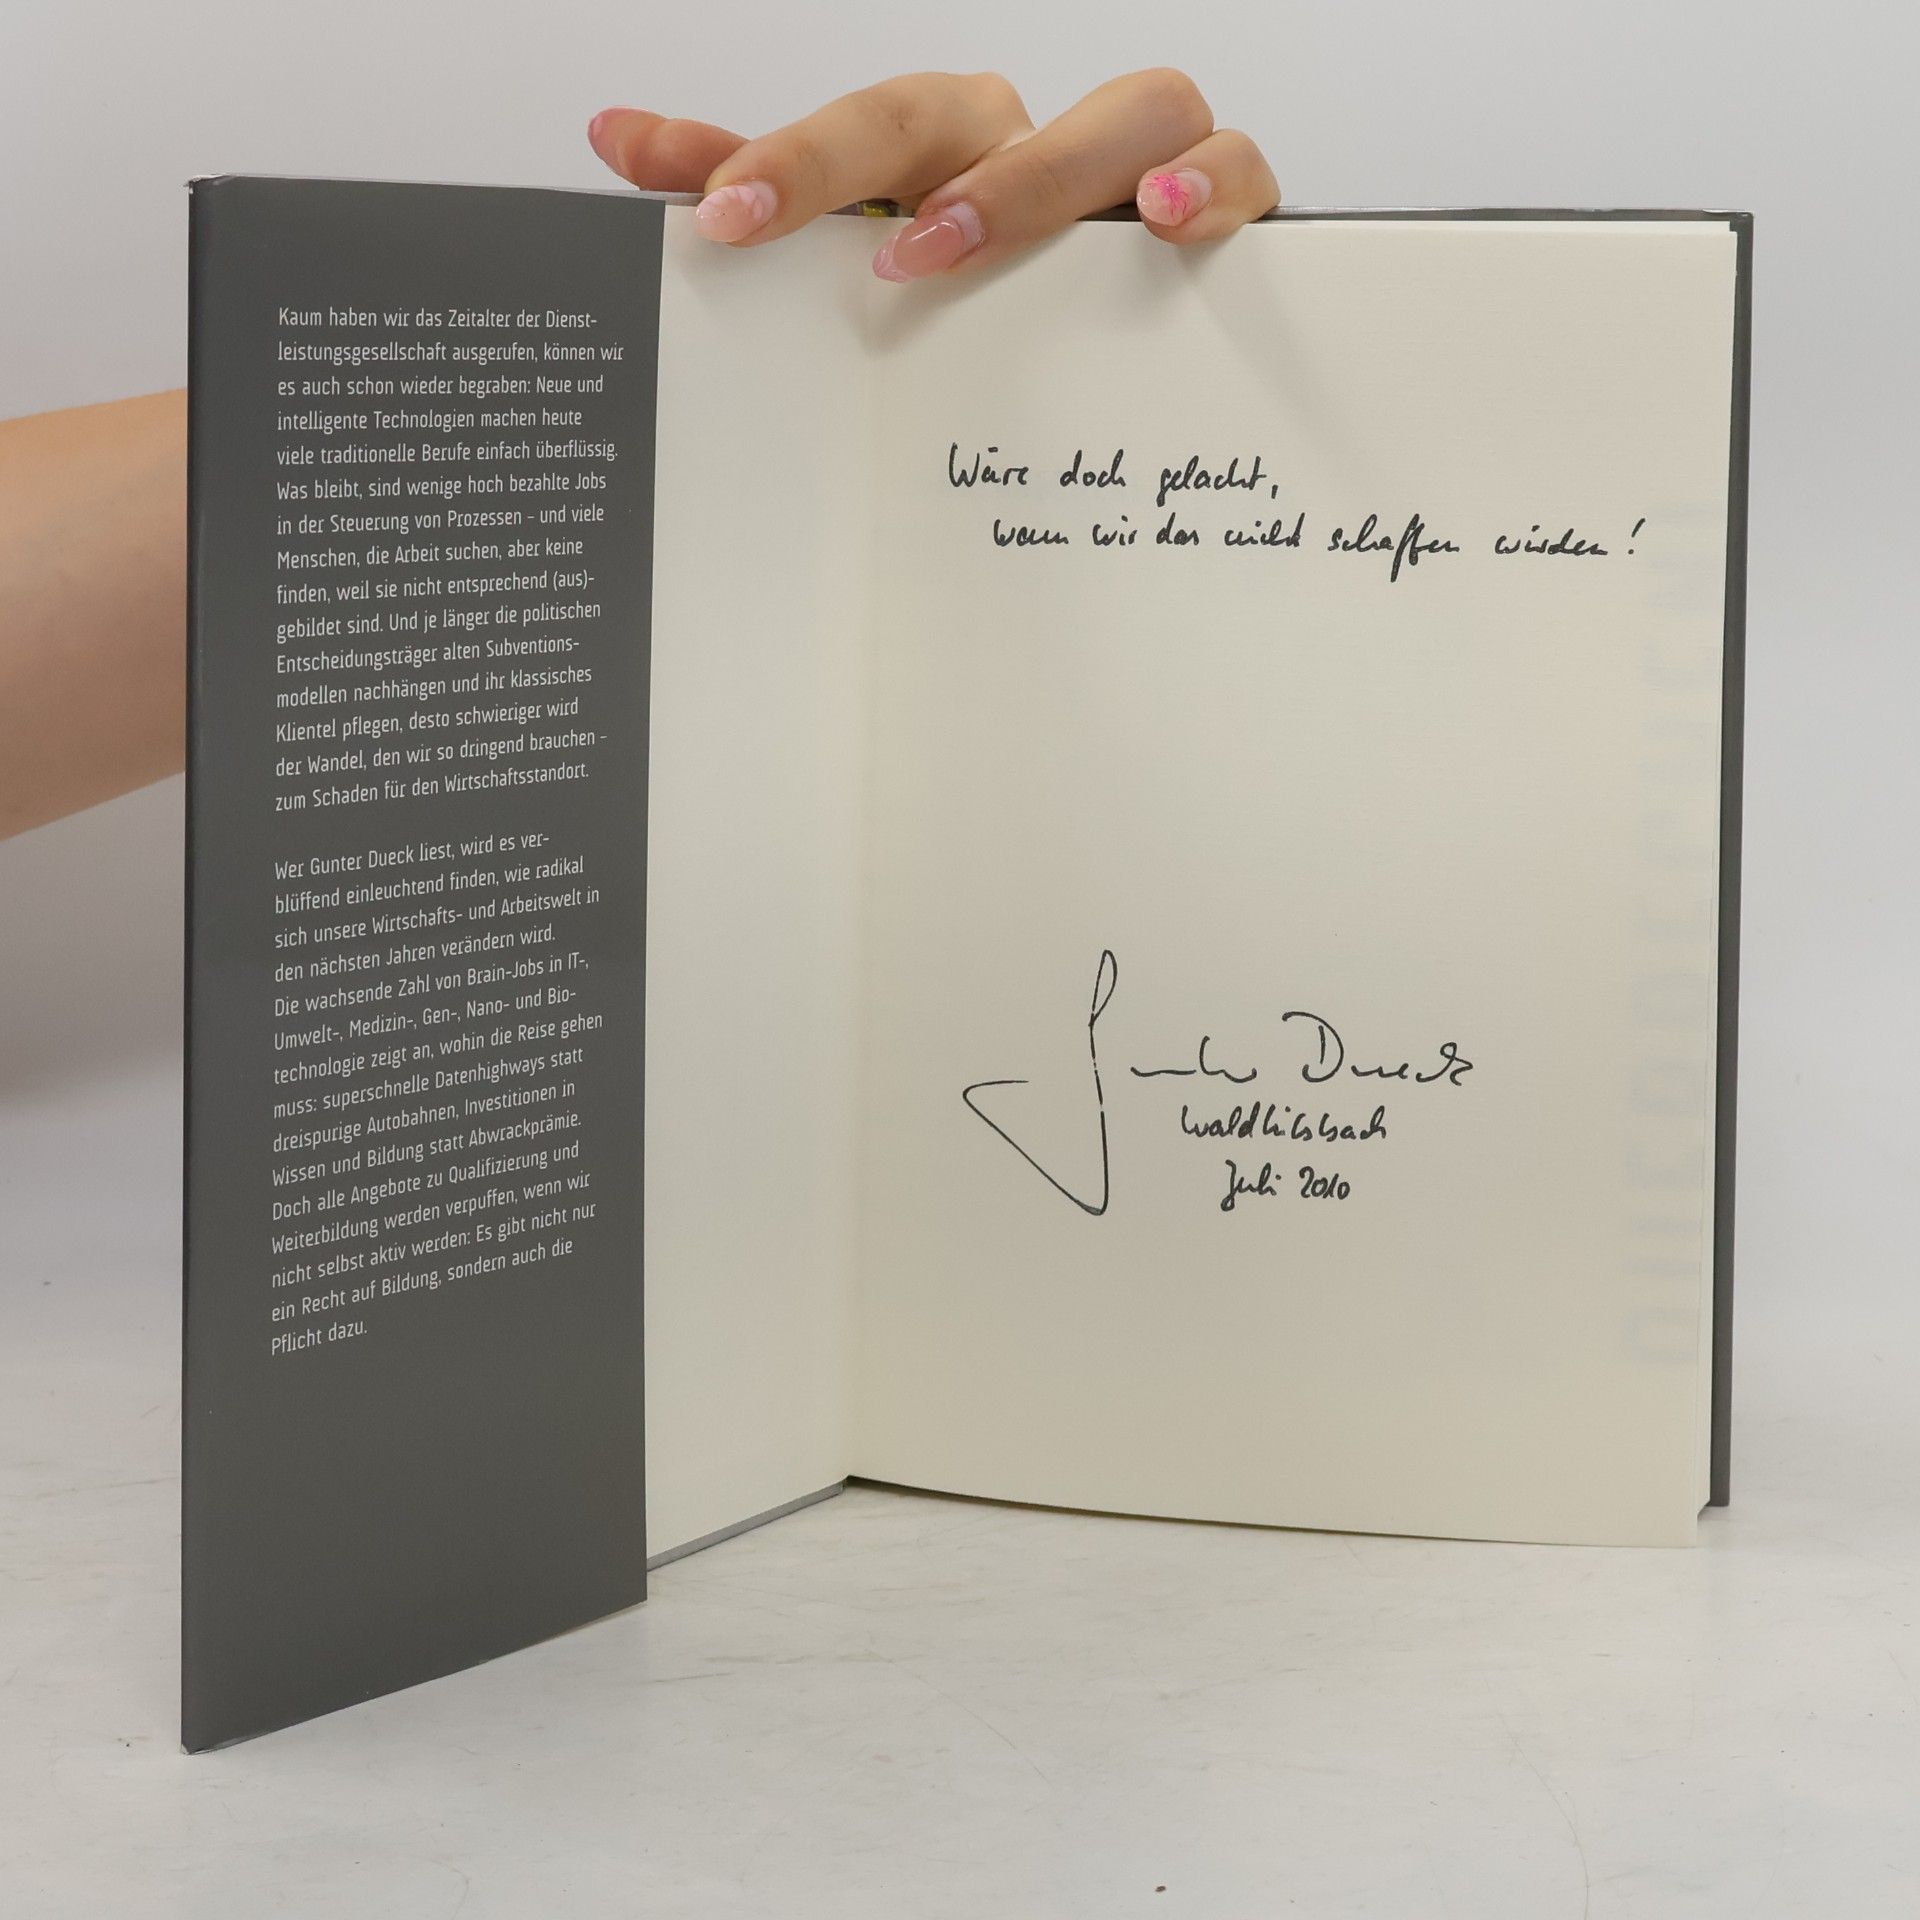 Kaum haben wir das Zeitalter der Dienst-
leistungsgesellschaft ausgerufen, können wir
es auch schon wieder begraben: Neue und
intelligente Technologien machen heute
viele traditionelle Berufe einfach überflüssig.
Was bleibt, sind wenige hoch bezahlte Jobs
in der Steuerung von Prozessen – und viele
Menschen, die Arbeit suchen, aber keine
finden, weil sie nicht entsprechend (aus)-
gebildet sind. Und je länger die politischen
Entscheidungsträger alten Subventions-
modellen nachhängen und ihr klassisches
Klientel pflegen, desto schwieriger wird
der Wandel, den wir so dringend brauchen –
zum Schaden für den Wirtschaftsstandort.
Wer Gunter Dueck liest, wird es ver-
blüffend einleuchtend finden, wie radikal
sich unsere Wirtschafts- und Arbeitswelt in
den nächsten Jahren verändern wird.
Die wachsende Zahl von Brain-Jobs in IT-,
Umwelt-, Medizin-, Gen-, Nano- und Bio-
technologie zeigt an, wohin die Reise gehen
muss: superschnelle Datenhighways statt
dreispurige Autobahnen, Investitionen in
Wissen und Bildung statt Abwrackprämie.
Doch alle Angebote zu Qualifizierung und
Weiterbildung werden verpuffen, wenn wir
nicht selbst aktiv werden: Es gibt nicht nur
ein Recht auf Bildung, sondern auch die
Pflicht dazu.
Wäre doch gelacht,
wenn wir das nicht schaffen würden!
Gunter Dueck
Waldhilsbach
Juli 2010